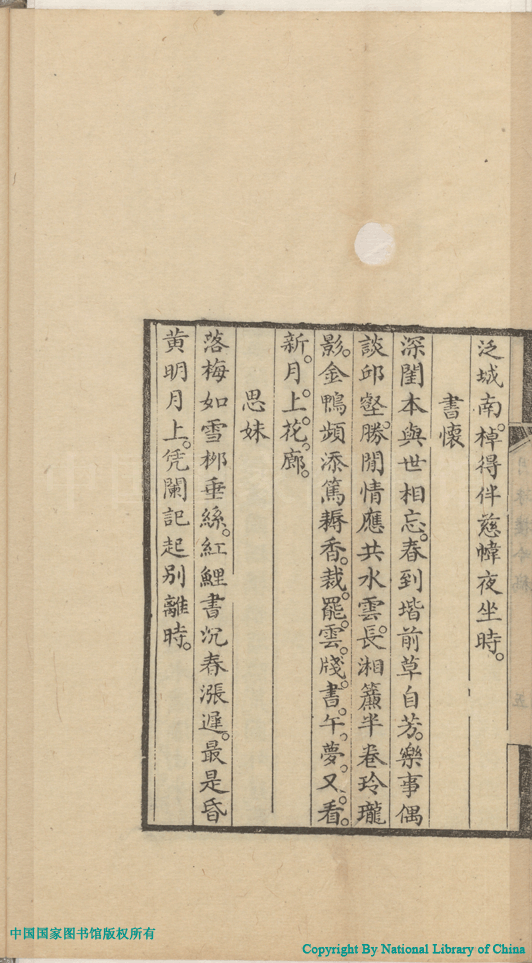 泛城南。棹得伴慈幃夜坐時。
書懷
深閨本與世相忘。春到堦前草自芳。樂事偶
談邱壑勝。閒情應共水雲長。湘簾半卷玲瓏
影。金鴨頻添篤耨香。裁罷雲牋書午夢。又看
新月上花廊。
思妹
落梅如雪栁垂絲。紅鯉書沉春漲遲。最是昏
黄明月上。凭闌記起別離時。
中国国家图书馆版权所有
Copyright By National Library of China